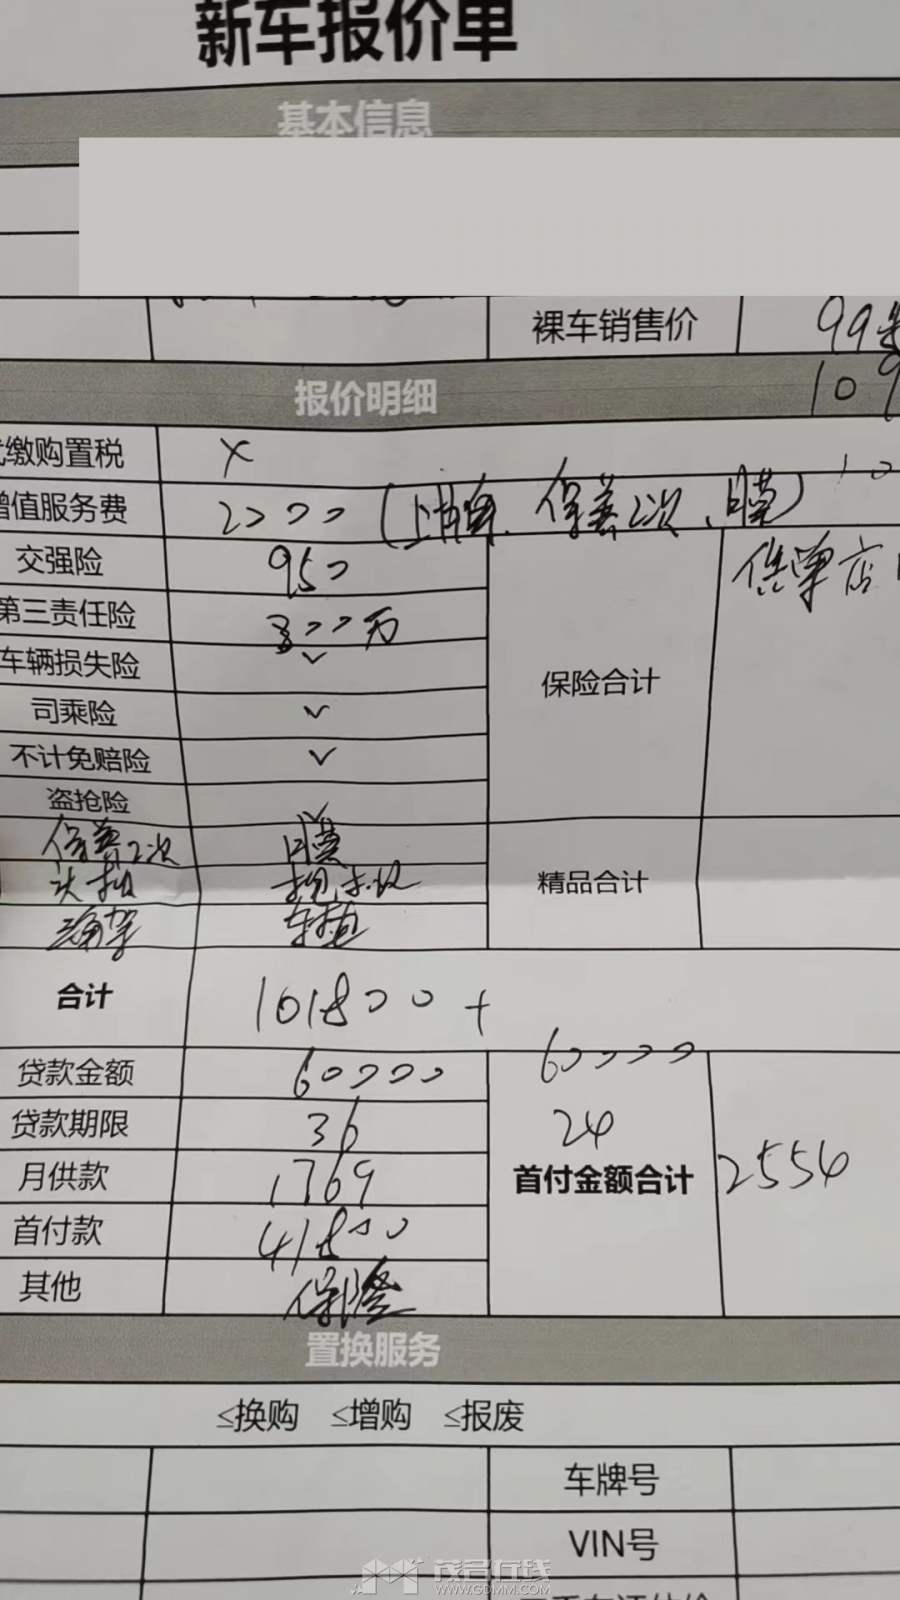 新车报价单
基本信息
裸车销售价 99
报价明细 109
缴购置税 X
增值服务费 2000 (上牌、保养2次、日膜)
交强险 950
第三责任险 300万
车辆损失险 ✓
保险合计
司乘险 ✓
不计免赔险 ✓
盗抢险
保养2次 日膜
精品合计
三角架 车垫
合计 101800 +
贷款金额 60000 60000
贷款期限 36 24
月供款 1769 首付金额合计 2554
首付款 41800
其他 保险
置换服务
≤换购 ≤增购 ≤报废
车牌号
VIN号
茂名在线
WWW.GDMM.COM